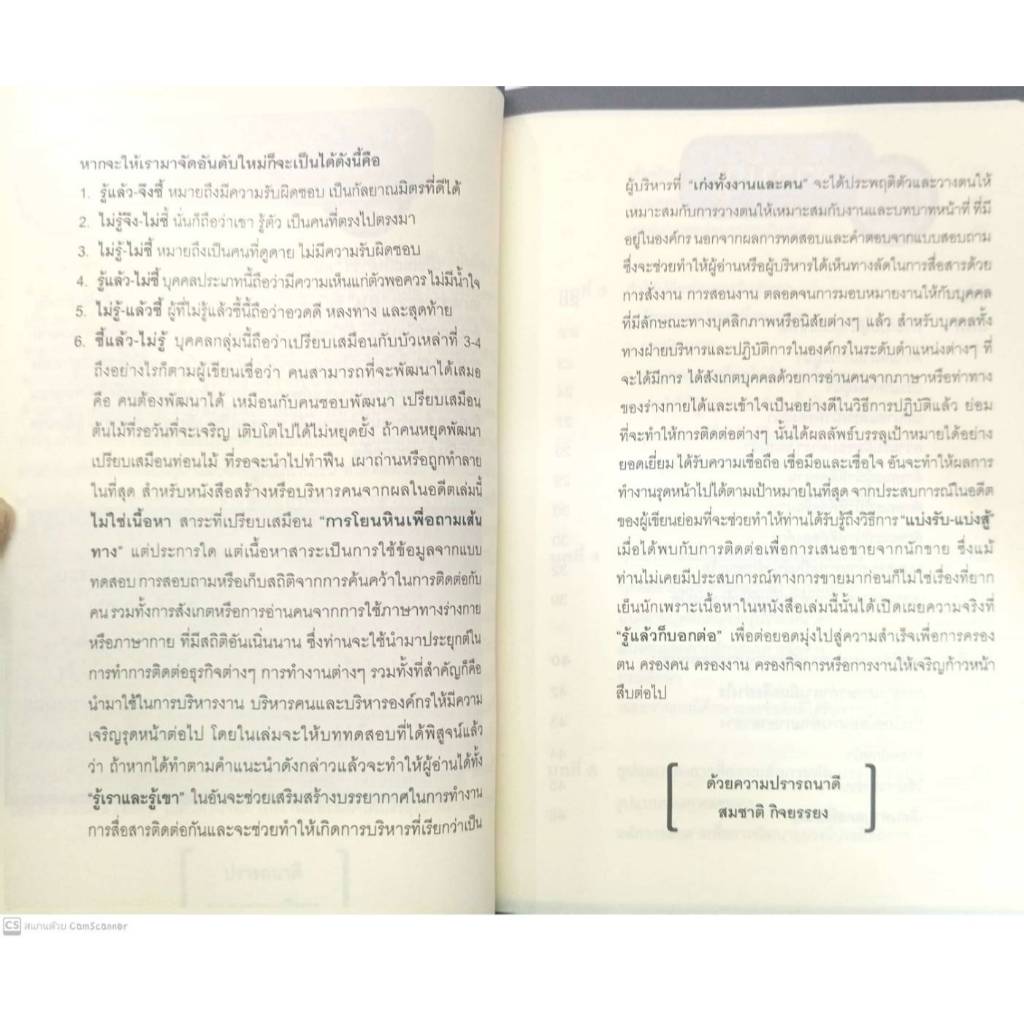 หากจะให้เรามาจัดอันดับใหม่ก็จะเป็นได้ดังนี้คือ
1. รู้แล้ว-จึงชี้ หมายถึงมีความรับผิดชอบ เป็นกัลยาณมิตรที่ดีได้
2. ไม่รู้จึง-ไม่ชี้ นั่นก็ถือว่าเขา รู้ตัว เป็นคนที่ตรงไปตรงมา
3. ไม่รู้-ไม่ชี้ หมายถึงเป็นคนที่ดูดาย ไม่มีความรับผิดชอบ
4. รู้แล้ว-ไม่ชี้ บุคคลประเภทนี้ถือว่ามีความเห็นแก่ตัวพอควร ไม่มีน้ำใจ
5. ไม่รู้-แล้วชี้ ผู้ที่ไม่รู้แล้วชี้นี้ถือว่าอวดดี หลงทาง และสุดท้าย
6. ชี้แล้ว-ไม่รู้ บุคคลกลุ่มนี้ถือว่าเปรียบเสมือนกับบัวเหล่าที่ 3-4
ถึงอย่างไรก็ตามผู้เขียนเชื่อว่า คนสามารถที่จะพัฒนาได้เสมอ
คือ คนต้องพัฒนาได้ เหมือนกับคนชอบพัฒนา เปรียบเสมือน
ต้นไม้ที่รอวันที่จะเจริญ เติบโตไปได้ไม่หยุดยั้ง ถ้าคนหยุดพัฒนา
เปรียบเสมือนท่อนไม้ ที่รอจะนำไปทำฟืน เผาถ่านหรือถูกทำลาย
ในที่สุด สำหรับหนังสือสร้างหรือบริหารคนจากผลในอดีตเล่มนี้
ไม่ใช่เนื้อหา สาระที่เปรียบเสมือน "การโยนหินเพื่อถามเส้น
ทาง" แต่ประการใด แต่เนื้อหาสาระเป็นการใช้ข้อมูลจากแบบ
ทดสอบ การสอบถามหรือเก็บสถิติจากการค้นคว้าในการติดต่อกับ
คน รวมทั้งการสังเกตหรือการอ่านคนจากการใช้ภาษาทางร่างกาย
หรือภาษากาย ที่มีสถิติอันเนิ่นนาน ซึ่งท่านจะใช้นำมาประยุกต์ใน
การทำการติดต่อธุรกิจต่างๆ การทำงานต่างๆ รวมทั้งที่สำคัญก็คือ
นำมาใช้ในการบริหารงาน บริหารคนและบริหารองค์กรให้มีความ
เจริญรุดหน้าต่อไป โดยในเล่มจะให้บททดสอบที่ได้พิสูจน์แล้ว
ว่า ถ้าหากได้ทำตามคำแนะนำดังกล่าวแล้วจะทำให้ผู้อ่านได้ทั้ง
"รู้เราและรู้เขา" ในอันจะช่วยเสริมสร้างบรรยากาศในการทำงาน
การสื่อสารติดต่อกันและจะช่วยทำให้เกิดการบริหารที่เรียกว่าเป็น
ผู้บริหารที่ "เก่งทั้งงานและคน" จะได้ประพฤติตัวและวางตนให้
เหมาะสมกับการวางตนให้เหมาะสมกับงานและบทบาทหน้าที่ ที่มี
อยู่ในองค์กร นอกจากผลการทดสอบและคำตอบจากแบบสอบถาม
ซึ่งจะช่วยทำให้ผู้อ่านหรือผู้บริหารได้เห็นทางลัดในการสื่อสารด้วย
การสั่งงาน การสอนงาน ตลอดจนการมอบหมายงานให้กับบุคคล
ที่มีลักษณะทางบุคลิกภาพหรือนิสัยต่างๆ แล้ว สำหรับบุคคลทั้ง
ทางฝ่ายบริหารและปฏิบัติการในองค์กรในระดับตำแหน่งต่างๆ ที่
จะได้มีการ ได้สังเกตบุคคลด้วยการอ่านคนจากภาษาหรือท่าทาง
ของร่างกายได้และเข้าใจเป็นอย่างดีในวิธีการปฏิบัติแล้ว ย่อม
ที่จะทำให้การติดต่อต่างๆ นั้นได้ผลลัพธ์บรรลุเป้าหมายได้อย่าง
ยอดเยี่ยม ได้รับความเชื่อถือ เชื่อมือและเชื่อใจ อันจะทำให้ผลการ
ทำงานรุดหน้าไปได้ตามเป้าหมายในที่สุด จากประสบการณ์ในอดีต
ของผู้เขียนย่อมที่จะช่วยทำให้ท่านได้รับรู้ถึงวิธีการ "แบ่งรับ-แบ่งสู้"
เมื่อได้พบกับการติดต่อเพื่อการเสนอขายจากนักขาย ซึ่งแม้
ท่านไม่เคยมีประสบการณ์ทางการขายมาก่อนก็ไม่ใช่เรื่องที่ยาก
เย็นนักเพราะเนื้อหาในหนังสือเล่มนี้นั้นได้เปิดเผยความจริงที่
"รู้แล้วก็บอกต่อ" เพื่อต่อยอดมุ่งไปสู่ความสำเร็จเพื่อการครอง
ตน ครองคน ครองงาน ครองกิจการหรือการงานให้เจริญก้าวหน้า
สืบต่อไป
ด้วยความปรารถนาดี
สมชาติ กิจยรรยง
CS สแกนด้วย CamScanner